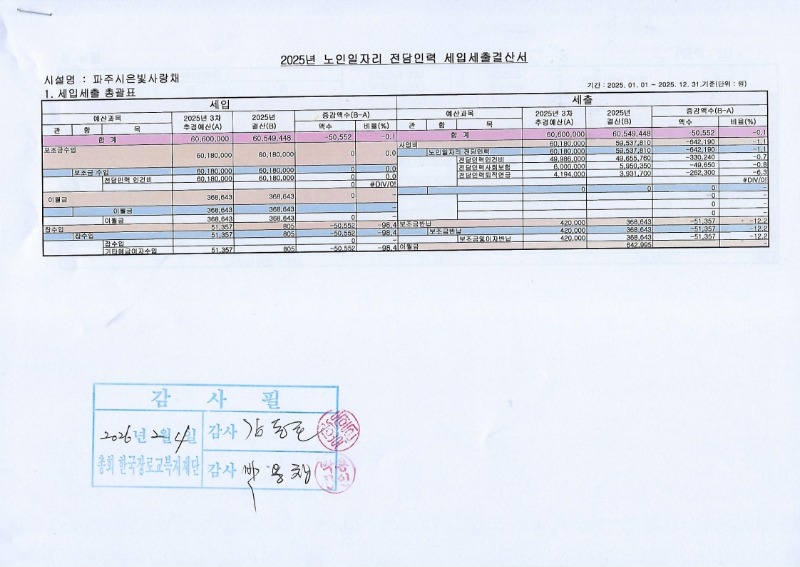 2025년 노인일자리 전담인력 세입세출결산서
시설명 : 파주시은빛사랑채
1. 세입세출 총괄표
기간 : 2025. 01. 01 ~ 2025. 12. 31.기준(단위 : 원)
세입 세출
예산과목 2025년 3차 추경예산(A) 2025년 결산(B) 증감액수(B-A) 예산과목 2025년 3차 추경예산(A) 2025년 결산(B) 증감액수(B-A)
관 항 목 액수 비율(%) 관 항 목 액수 비율(%)
합 계 60,600,000 60,549,448 -50,552 -0.1 합 계 60,600,000 60,549,448 -50,552 -0.1
보조금수입 60,180,000 60,180,000 0 0.0 사업비 60,180,000 59,537,810 -642,190 -1.1
노인일자리 전담인력 60,180,000 59,537,810 -642,190 -1.1
전담인력인건비 49,986,000 49,655,760 -330,240 -0.7
보조금 수입 60,180,000 60,180,000 0 0.0 전담인력사회보험 6,000,000 5,950,350 -49,650 -0.8
전담인력 인건비 60,180,000 60,180,000 0 0.0 전담인력퇴직연금 4,194,000 3,931,700 -262,300 -6.3
0 #DIV/0! #DIV/0!
이월금 368,643 368,643 0 - 0 0 0 -
이월금 368,643 368,643 0 - 0 -
이월금 368,643 368,643 0 - 0 -
잡수입 51,357 805 -50,552 -98.4 보조금반납 420,000 368,643 -51,357 -12.2
잡수입 51,357 805 -50,552 -98.4 보조금반납 420,000 368,643 -51,357 -12.2
잡수입 0 - 보조금및이자반납 420,000 368,643 -51,357 -12.2
기타예금이자수입 51,357 805 -50,552 -98.4 이월금 642,995 -
감 사 필
2026년 2월 4일 감사
총회 한국장로교복지재단 감사